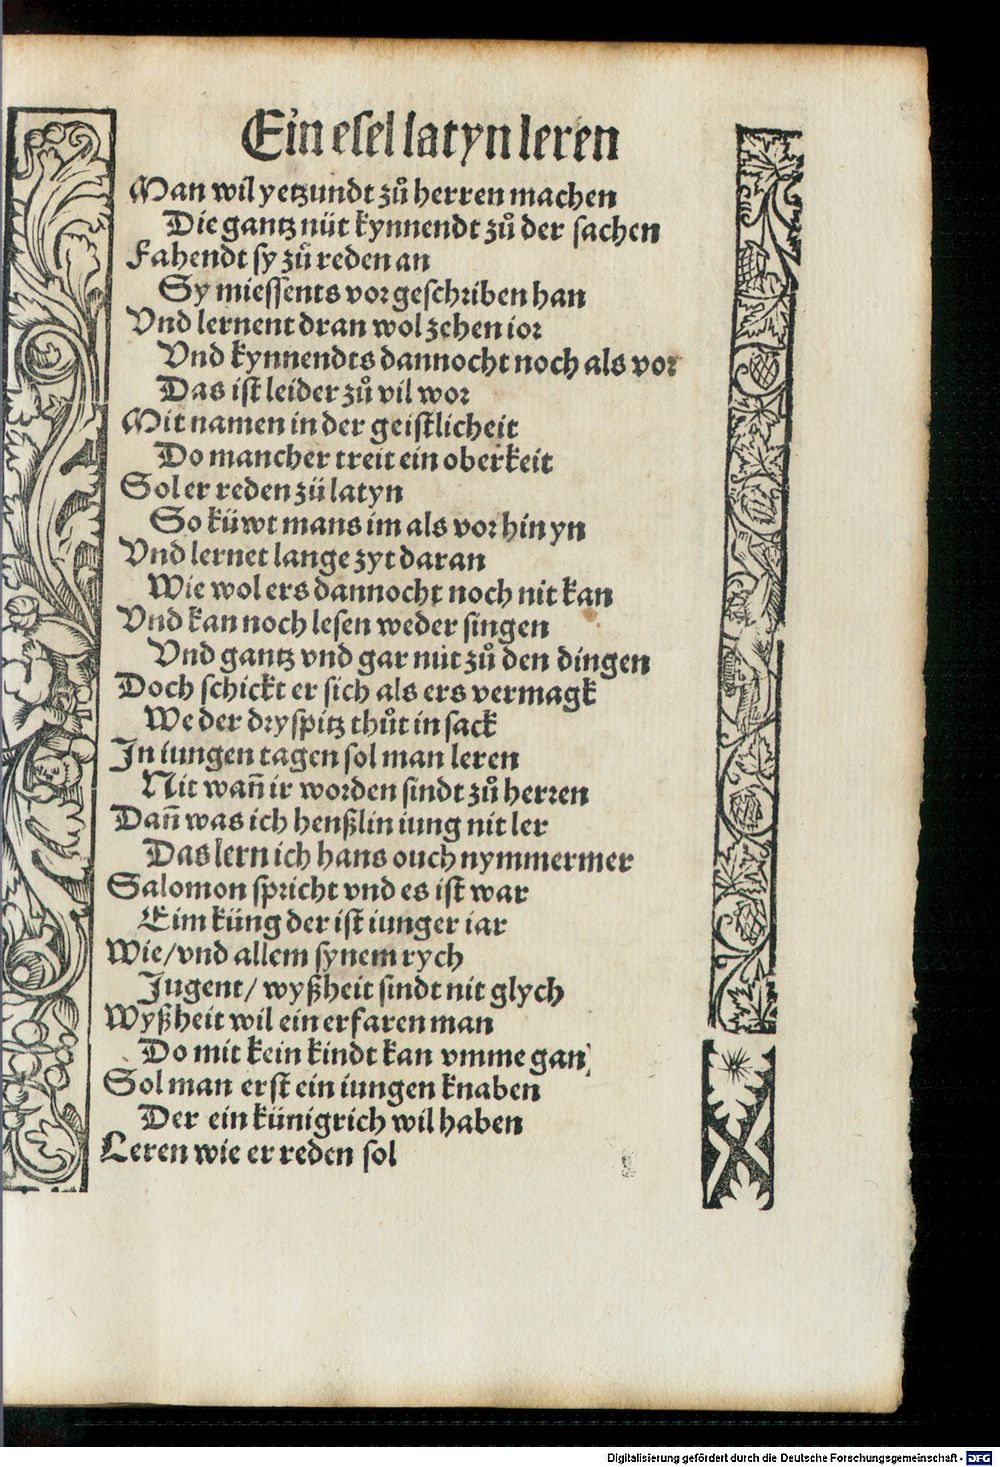 Ein esel latyn leren
Man wil yetzundt zů herren machen
Die gantz nüt kynnendt zů der sachen
Fahendt sy zů reden an
Sy miessents vorgeschriben han
Vnd lernent dran wol zehen ior
Vnd kynnendts dannocht noch als vor
Das ist leider zů vil wor
Mit namen in der geistlicheit
Do mancher treit ein oberkeit
Sol er reden zü latyn
So küwt mans im als vor hin yn
Vnd lernet lange zyt daran
Wie wol ers dannocht noch nit kan
Vnd kan noch lesen weder singen
Vnd gantz vnd gar nüt zů den dingen
Doch schickt er sich als ers vermagk
We der dryspitz thůt in sack
In iungen tagen sol man leren
Nit wañ ir worden sindt zů herren
Dañ was ich henßlin iung nit ler
Das lern ich hans ouch nymmermer
Salomon spricht vnd es ist war
Eim küng der ist iunger iar
Wie/vnd allem synem rych
Jugent/ wyßheit sindt nit glych
Wyßheit wil ein erfaren man
Do mit kein kindt kan vmme gan
Sol man erst ein iungen knaben
Der ein künigrich wil haben
Leren wie er reden sol
Digitalisierung gefördert durch die Deutsche Forschungsgemeinschaft - DFG